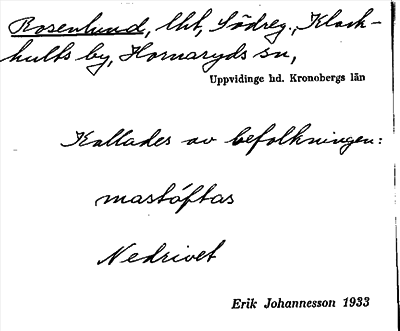 Rosenlund, lht, Södreg., Klack-
hults by, Hornaryds sn,
Uppvidinge hd. Kronobergs län
Kallades av befolkningen:
mastóftas
Nedrivet
Erik Johannesson 1933